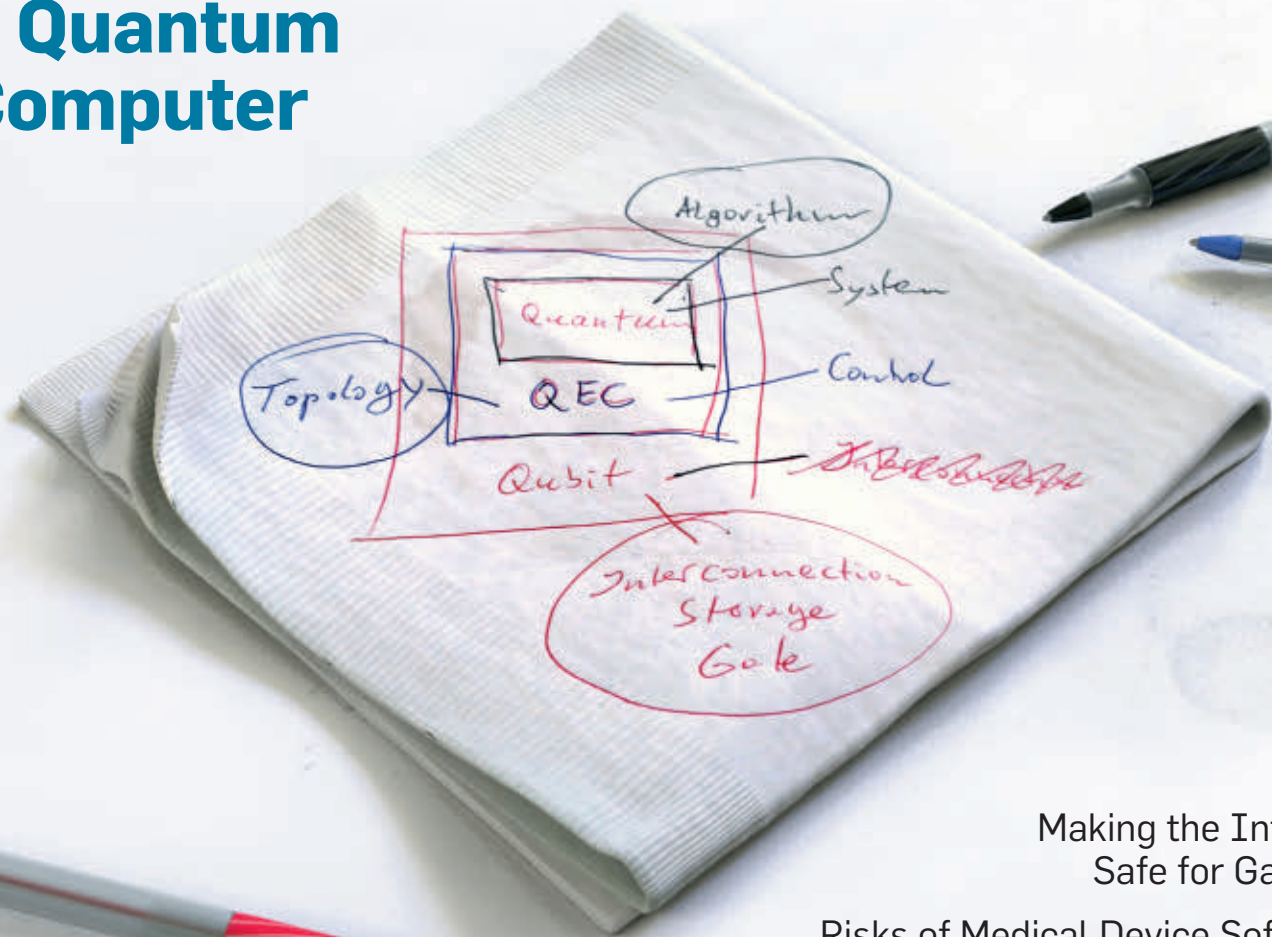 Quantum
Computer
Algorithm
System
Quantum
Control
Topology
QEC
Qubit
Interconnection
Storage
Gate
Making the
Safe for
Risks of Medical Device